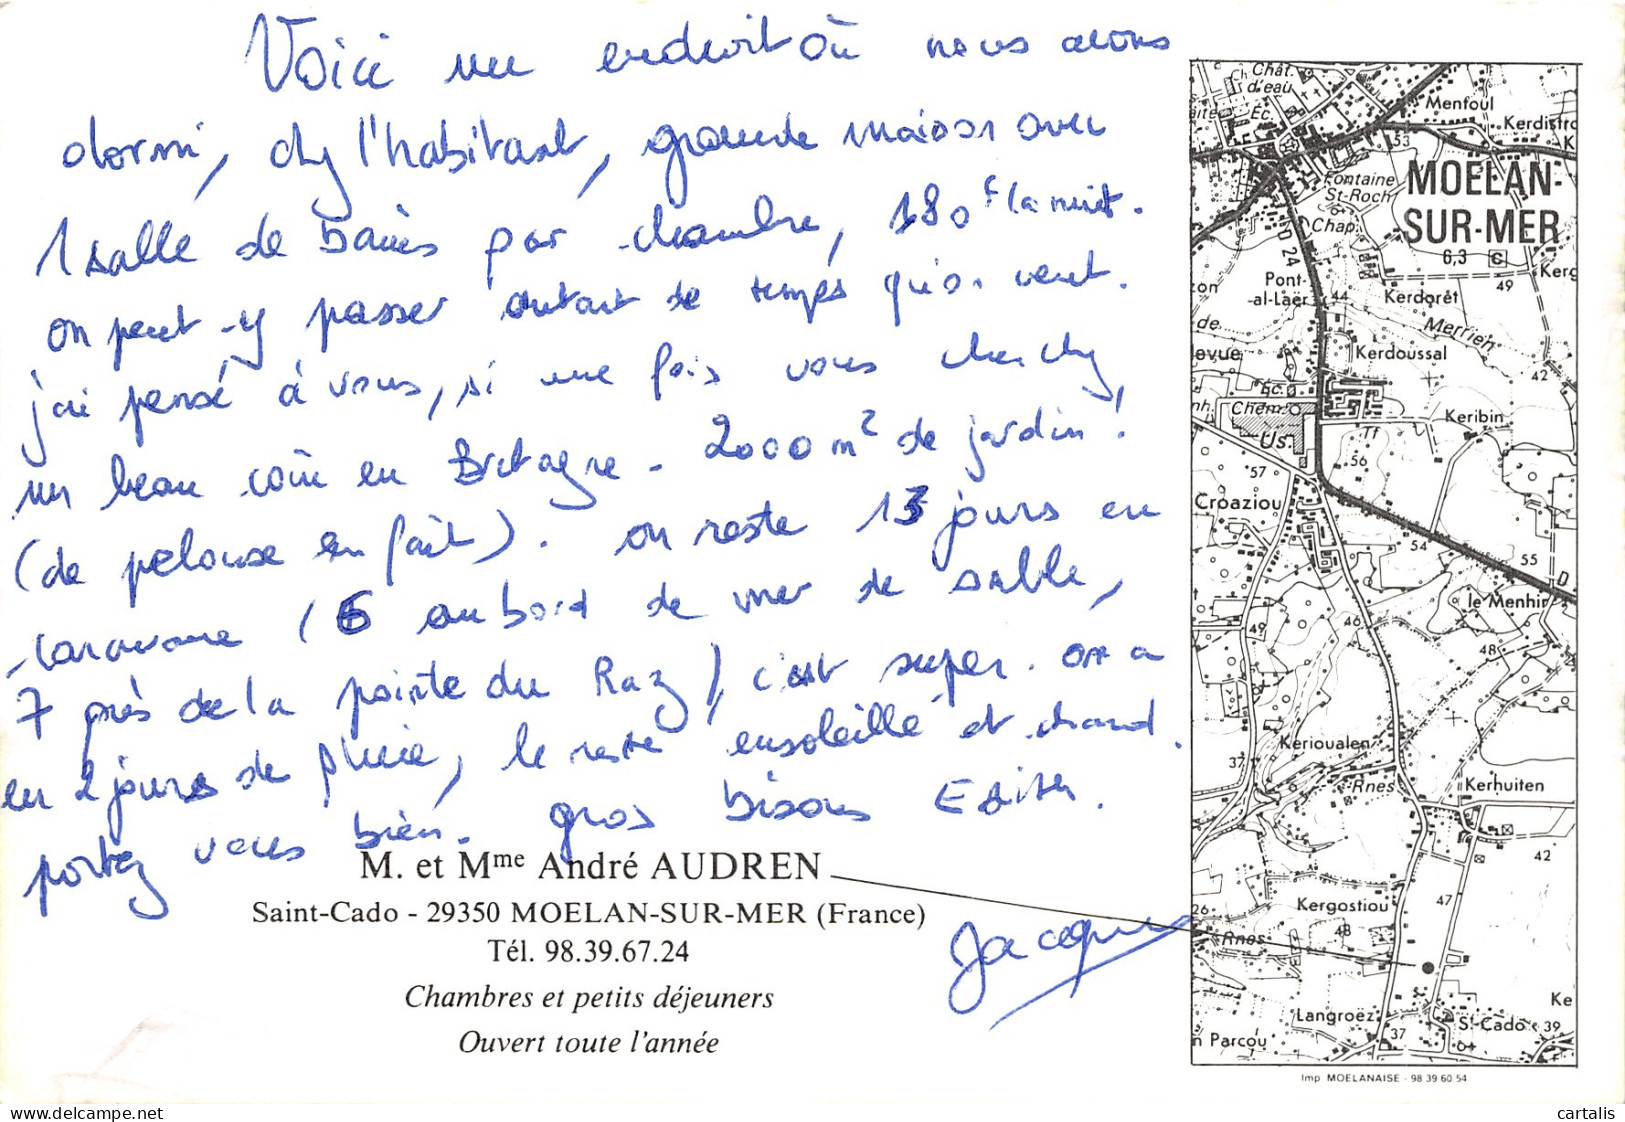 Voici un endroit où nous avons
dormi, chz l'habitant, grande maison avec
1 salle de bains par chambre, 180F la nuit.
on peut-y passer autant de temps qu'on veut.
j'ai pensé à vous, si une fois vous cherchz
un beau coin en Bretagne - 2000 m² de jardin!
(de pelouse en fait). on reste 13 jours en
caravane (6 au bord de mer de sable,
7 près de la pointe du Raz) c'est super. on a
eu 2 jours de pluie, le reste ensoleillé et chaud.
portez vous bien. gros bisous Edith.
Jacques
M. et Mme André AUDREN
Saint-Cado - 29350 MOELAN-SUR-MER (France)
Tél. 98.39.67.24
Chambres et petits déjeuners
Ouvert toute l'année
Chât. d'eau
Menfoul
Kerdistro
Éc.
53
MOELAN-
SUR-MER
6,3 C
Fontaine
St-Roch
Chap.
D 24
Kerg
49
Pont-
-al-Laër
44
Kerdorêt
zon
de
Merrien
evue
Kerdoussal
42
Éc.
nh.
Chem.
Keribin
Us.
Tf
57
56
Croaziou
54
55
D
le Menhir
49
46
48
Kerioualen
37
Rnes
Kerhuiten
42
Kergostiou
47
26
48
Rnes
Ke
Langroëz
St-Cado
39
37
n Parcou
Imp MOELANAISE - 98 39 60 54
delcampe.net
cartalis